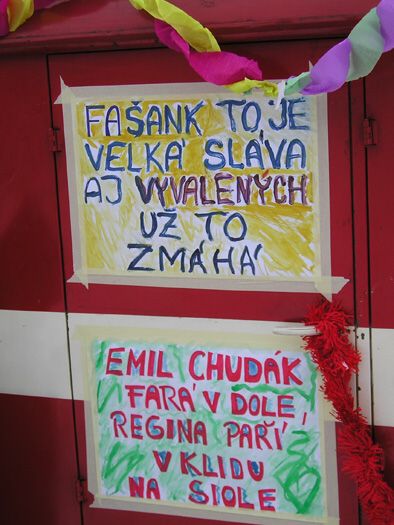 FAŠANK TO JE
VELKÁ SLÁVA
AJ VYVALENÝCH
UŽ TO
ZMÁHÁ
EMIL CHUDÁK
FARÁ V DOLE,
REGINA PAŘÍ
V KLIDU
NA STOLE